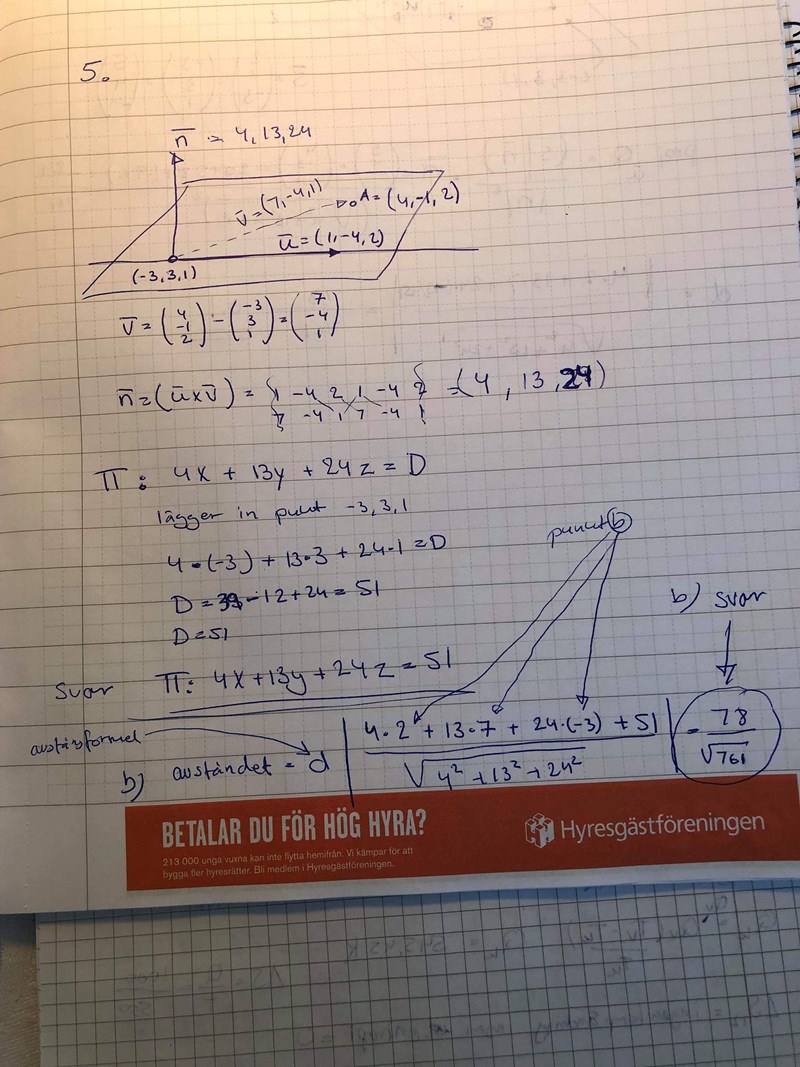 5.
n̅ = 4,13,24
v̅=(7,-4,1)
A=(4,-1,2)
u̅=(1,-4,2)
(-3,3,1)
v̅ = (4 -1 2) - (-3 3 1) = (7 -4 1)
n̅=(u̅xv̅) = { 1 -4 2 1 -4 2 } = (4, 13, 24)
7 -4 1 7 -4 1
π: 4x + 13y + 24z = D
lägger in punkt -3,3,1
4·(-3) + 13·3 + 24·1 = D
punkt b
D = 39 -12+24 = 51
b) svar
D=51
Svar π: 4x+13y+24z = 51
avståndsformel
b) avståndet = d | 4·2 + 13·7 + 24·(-3) + 51 / √4²+13²+24² | = 78/√761
BETALAR DU FÖR HÖG HYRA?
213 000 unga vuxna kan inte flytta hemifrån. Vi kämpar för att
bygga fler hyresrätter. Bli medlem i Hyresgästföreningen.
Hyresgästföreningen